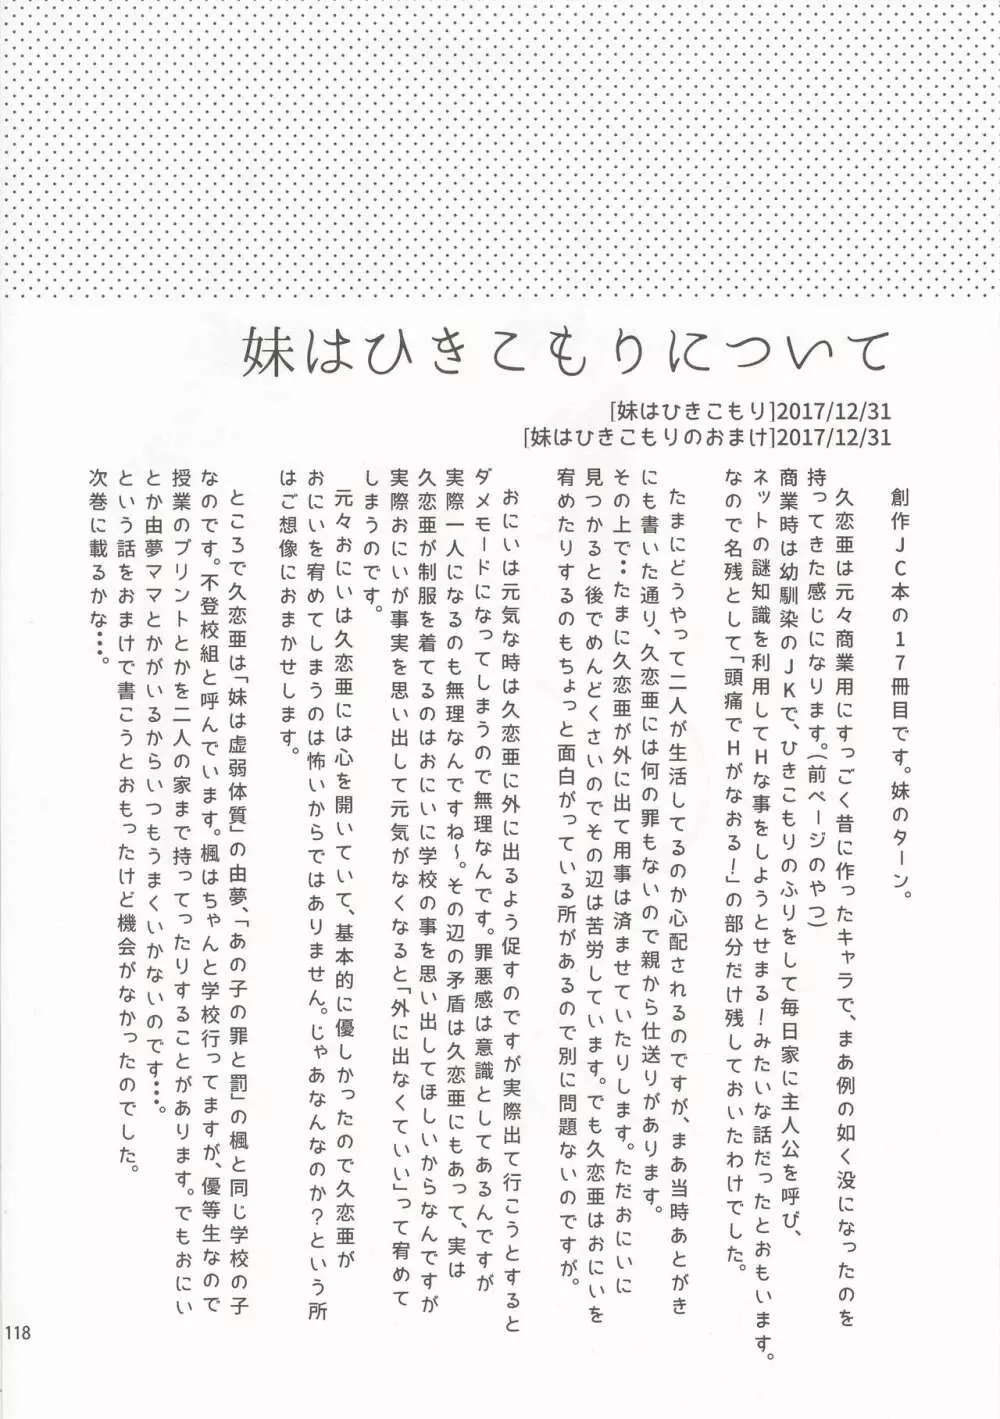 妹はひきこもりについて
[妹はひきこもり]2017/12/31
[妹はひきこもりのおまけ]2017/12/31
創作JC本の17冊目です。妹のターン。
久恋亜は元々商業用にすっごく昔に作ったキャラで、まあ例の如く没になったのを
持ってきた感じになります。(前ページのやつ)
商業時は幼馴染のJKで、ひきこもりのふりをして毎日家に主人公を呼び、
ネットの謎知識を利用してHな事をしようとせまる!みたいな話だったとおもいます。
なので名残として「頭痛でHがなおる!」の部分だけ残しておいたわけでした。
たまにどうやって二人が生活してるのか心配されるのですが、まあ当時あとがき
にも書いた通り、久恋亜には何の罪もないので親から仕送りがあります。
その上で‥たまに久恋亜が外に出て用事は済ませていたりします。ただおにいに
見つかると後でめんどくさいのでその辺は苦労しています。でも久恋亜はおにいを
宥めたりするのもちょっと面白がっている所があるので別に問題ないのですが。
おにいは元気な時は久恋亜に外に出るよう促すのですが実際出て行こうとすると
ダメモードになってしまうので無理なんです。罪悪感は意識としてあるんですが
実際一人になるのも無理なんですね~。その辺の矛盾は久恋亜にもあって、実は
久恋亜が制服を着てるのはおにいに学校の事を思い出してほしいからなんですが
実際おにいが事実を思い出して元気がなくなると「外に出なくていい」って宥めて
しまうのです。
元々おにいは久恋亜には心を開いていて、基本的に優しかったので久恋亜が
おにいを宥めてしまうのは怖いからではありません。じゃあなんなのか?という所
はご想像におまかせします。
ところで久恋亜は「妹は虚弱体質」の由夢、「あの子の罪と罰」の楓と同じ学校の子
なのです。不登校組と呼んでいます。楓はちゃんと学校行ってますが、優等生なので
授業のプリントとかを二人の家まで持ってったりすることがあります。でもおにい
とか由夢ママとかがいるからいつもうまくいかないのです‥‥。
という話をおまけで書こうとおもったけど機会がなかったのでした。
次巻に載るかな‥‥。
118